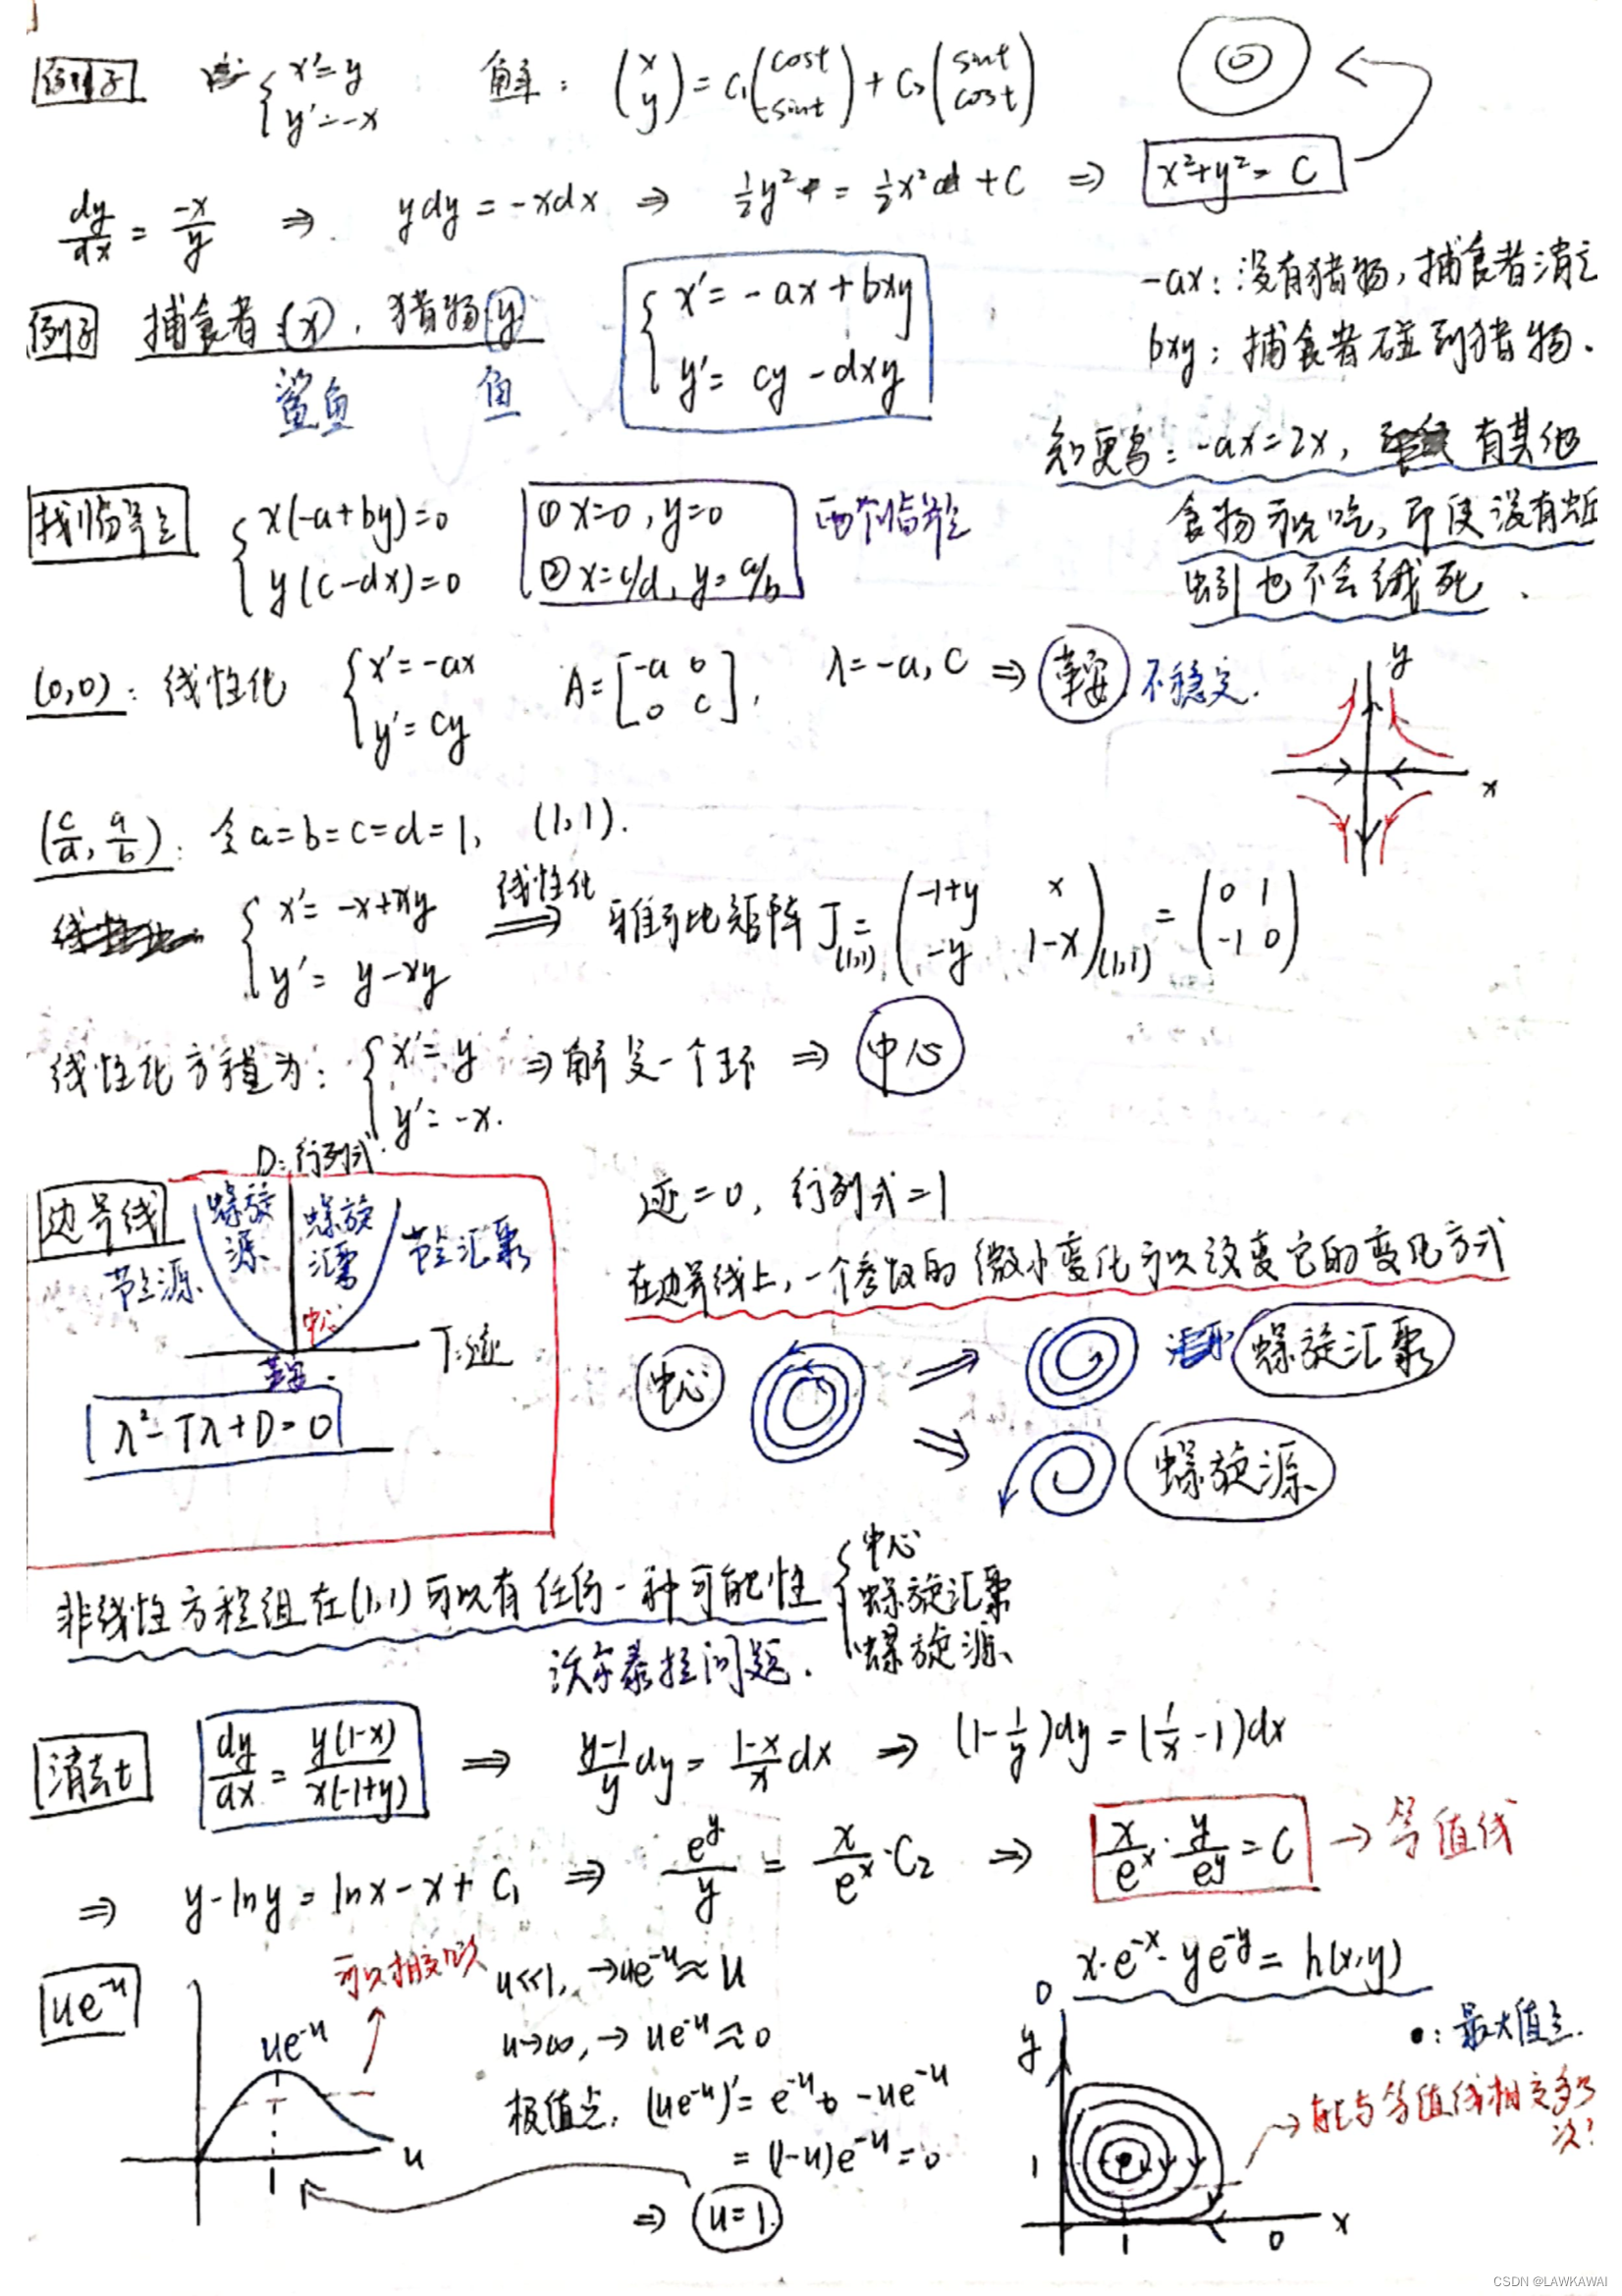 例子 { x'=y y'=-x 解: (x y) = C₁(cost -sint) + C₂(sint cost)
dy/dx = -x/y ⇒ ydy = -xdx ⇒ ½y² = ½x² + C ⇒ x²+y²= C
例子 捕食者(x), 猎物(y) { x'= -ax+bxy y'= cy-dxy
鲨鱼 鱼
-ax: 没有猎物, 捕食者消亡
bxy: 捕食者碰到猎物.
知更鸟: -ax=2x, 有其他
食物可以吃, 即使没有蚯
蚓也不会饿死.
找临界点 { x(-a+by)=0 y(c-dx)=0 ① x=0, y=0 ② x=c/d, y=a/b 两个临界点
(0,0): 线性化 { x'=-ax y'=cy A=[-a 0 0 c], λ=-a, c ⇒ 鞍 不稳定.
y
x
(c/d, a/b): 令a=b=c=d=1, (1,1).
{ x'= -x+xy y'= y-xy 线性化 ⇒ 雅可比矩阵 J(1,1) = (-1+y x -y 1-x)(1,1) = (0 1 -1 0)
线性化方程为: { x'=y y'=-x. ⇒ 解是一个环 ⇒ 中心
边界线 D:行列式
螺旋源 螺旋汇聚 节点源 节点汇聚
中心 T:迹
鞍.
λ²-Tλ+D=0
迹=0, 行列式=1
在边界线上, 一个参数的微小变化可以改变它的变化方式
中心 ⇒ 螺旋汇聚
⇒ 螺旋源
非线性方程组在(1,1)可以有任何一种可能性 { 中心 螺旋汇聚 螺旋源
沃尔泰拉问题.
消去t dy/dx = y(1-x)/x(-1+y) ⇒ y-1/y dy = 1-x/x dx ⇒ (1-1/y)dy = (1/x-1)dx
⇒ y-lny = lnx-x+C₁ ⇒ e^y/y = x/e^x·C₂ ⇒ x/e^x · y/e^y = C → 等值线
ue⁻ᵘ
ue⁻ᵘ
u
1
u<<1, →ue⁻ᵘ≈u
u→∞, → ue⁻ᵘ≈0
极值点: (ue⁻ᵘ)'= e⁻ᵘ -ue⁻ᵘ
= (1-u)e⁻ᵘ=0
⇒ u=1.
x·e⁻ˣ·ye⁻ʸ= h(x,y)
0
y
●: 最大值点.
→ 能与等值线相交多少次?
1
1 0 x
CSDN @LAWKAWAI